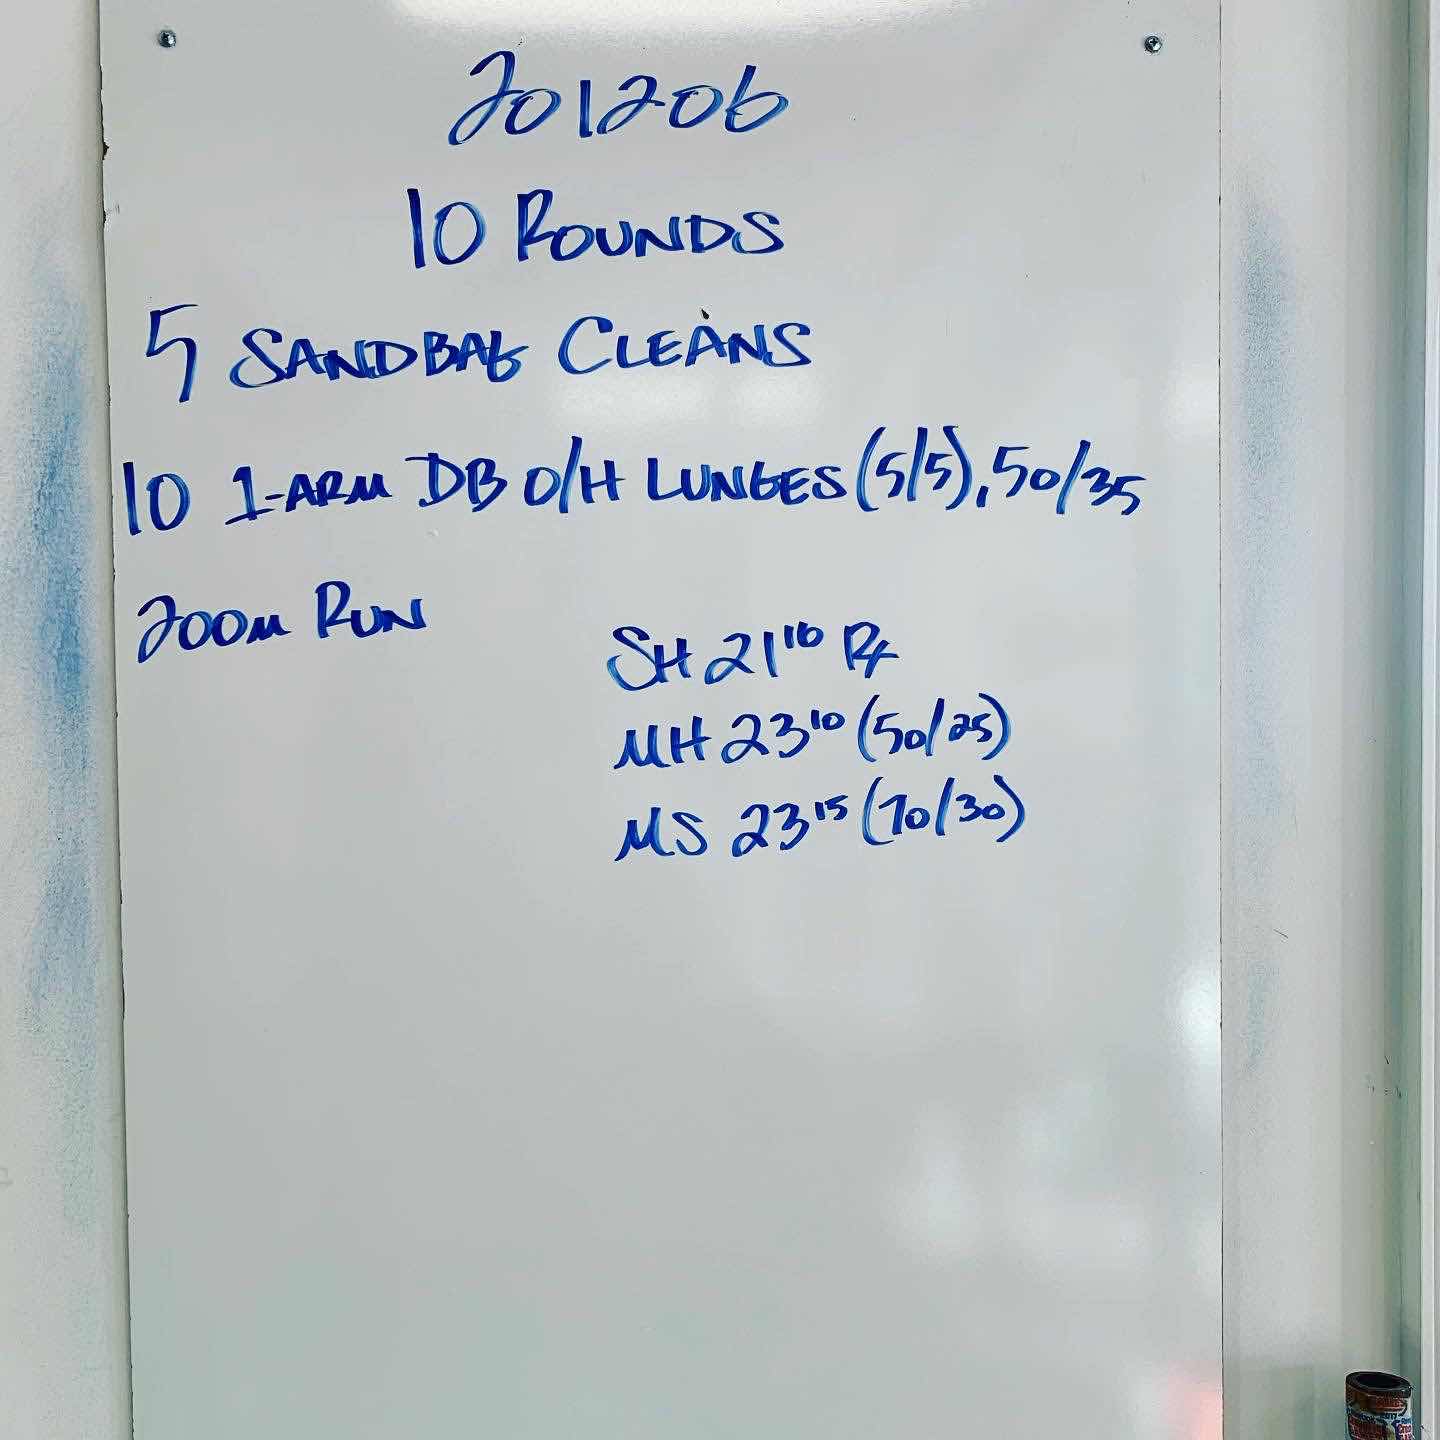 201206
10 ROUNDS
5 SANDBAG CLEANS
10 1-ARM DB O/H LUNGES (5/5), 50/35
200M RUN
SH 21¹⁰ RX
MH 23¹⁰ (50/25)
MS 23¹⁵ (70/30)